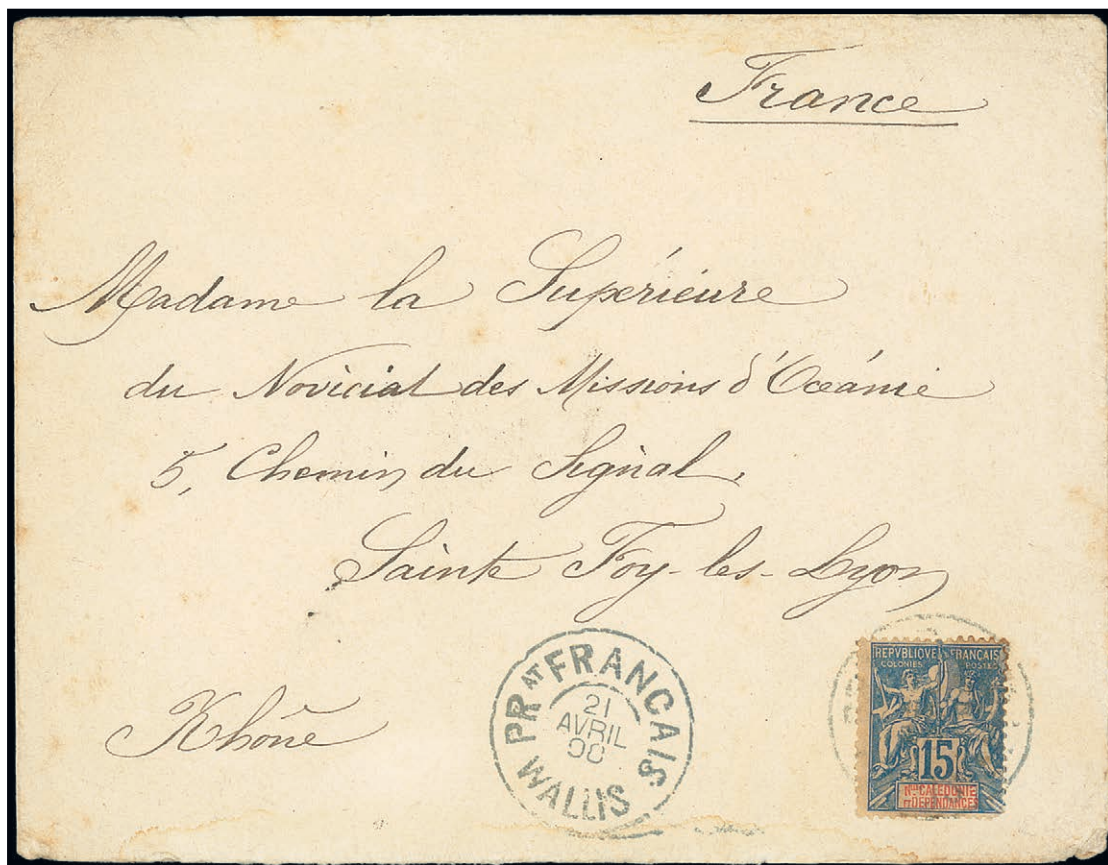 France
Madame la Supérieure
du Noviciat des Missions d'Océanie
5, Chemin du Signal,
Sainte Foy-les-Lyon
Rhône
PR AT FRANCAIS
21
AVRIL
WALLIS
REPVBLIQVE FRANCAIS
COLONIES POSTES
15
Nlle CALEDONIE
ET DEPENDANCES